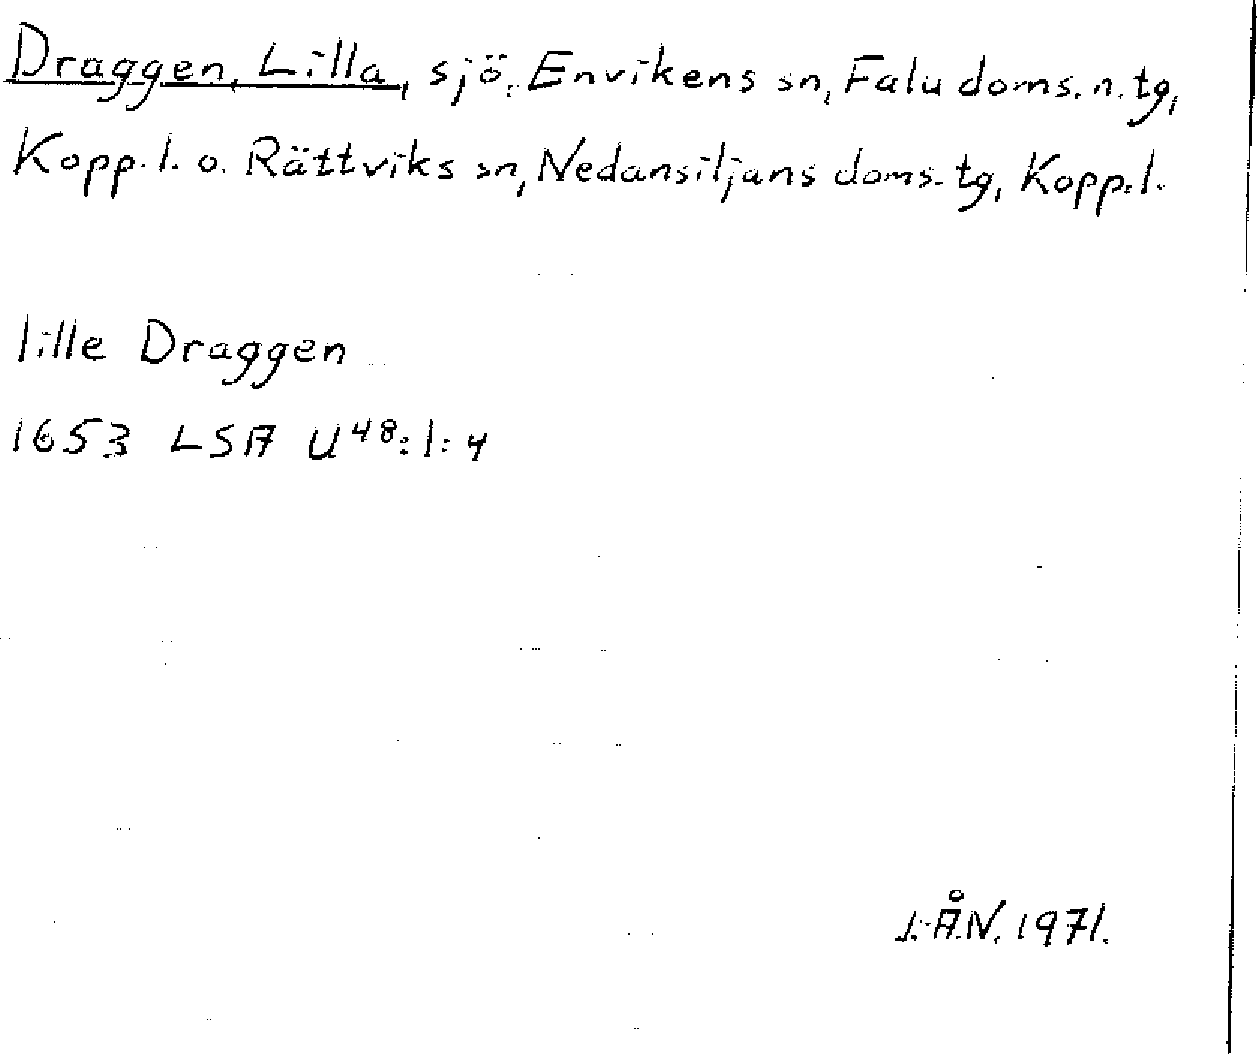 Draggen, Lilla, sjö. Envikens sn, Falu doms. n. tg,
Kopp. l. o. Rättviks sn, Nedansiljans doms. tg, Kopp. l.
lille Draggen
1653 LSA U48:1:4
J.Å.N. 1971.